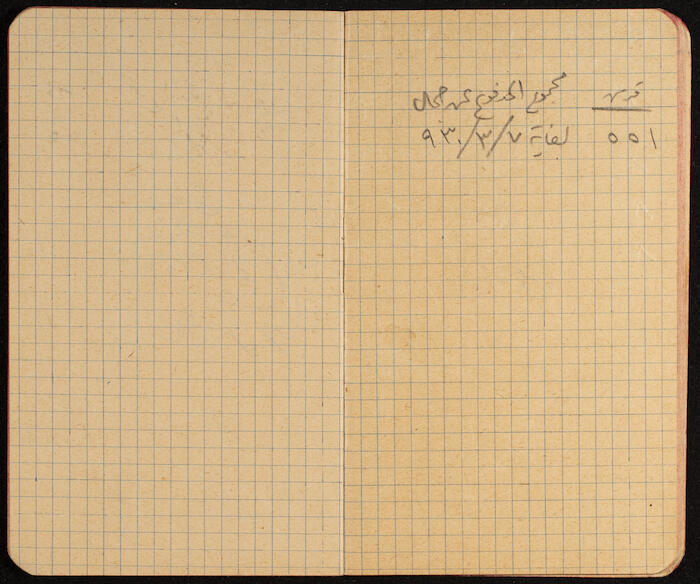 قرش مجموع المدفوع عن جمال
٥٥١ لغاية ٧/٣/٩٣٠